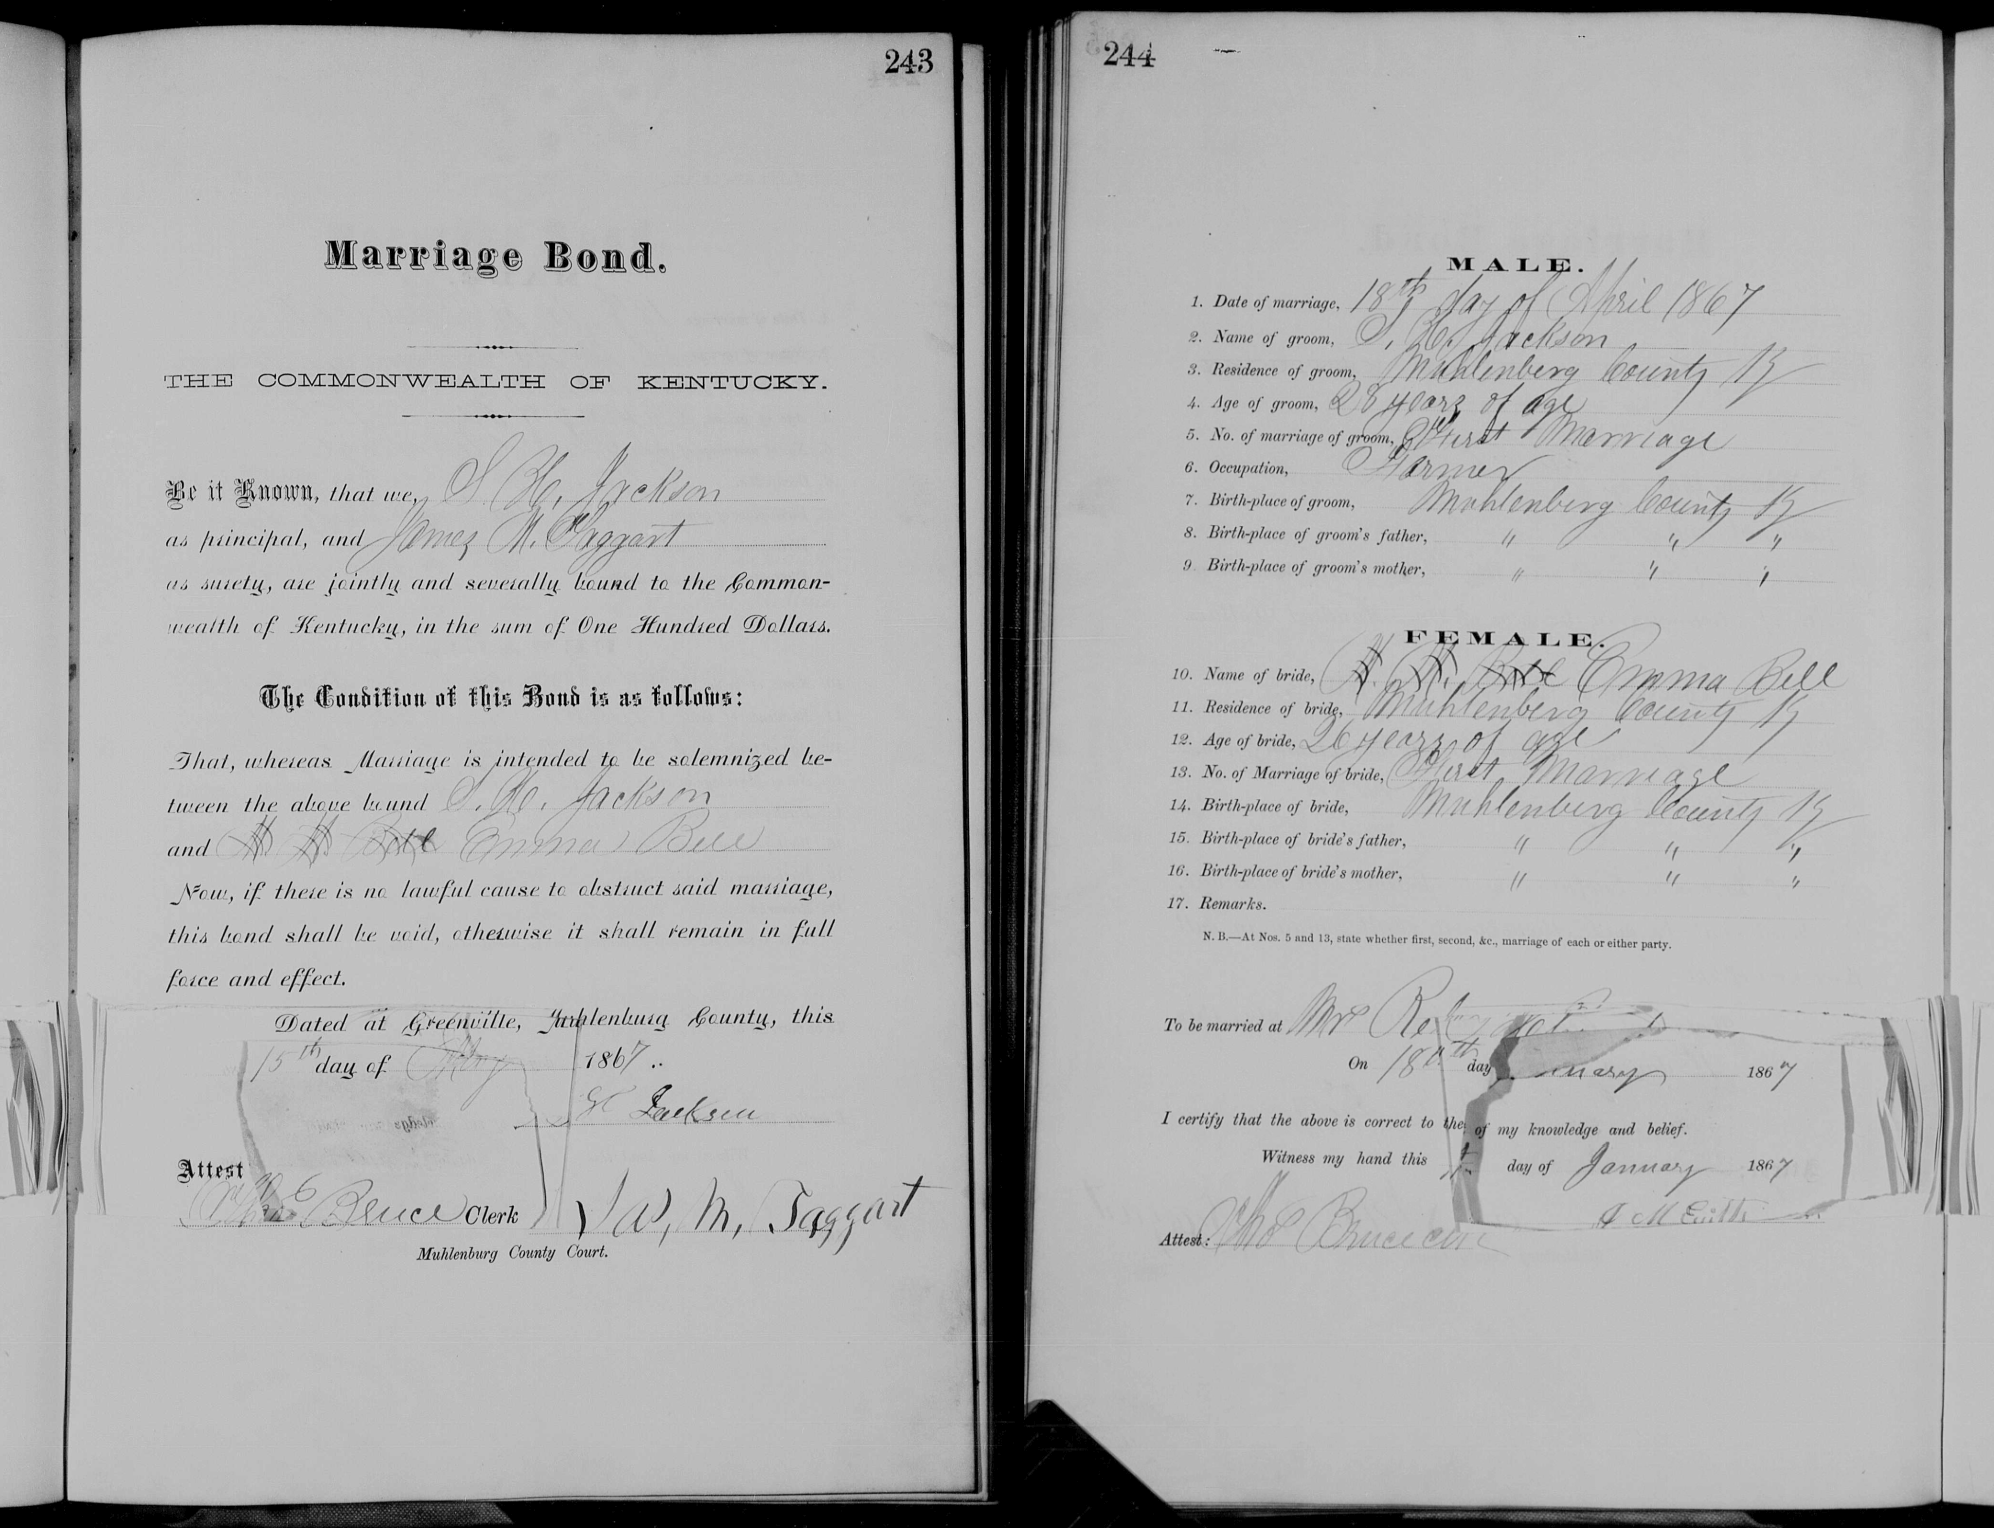 243
Marriage Bond.
THE COMMONWEALTH OF KENTUCKY.
Be it Known, that we, S. H. Jackson
as principal, and James M. Taggart
as surety, are jointly and severally bound to the Common-
wealth of Kentucky, in the sum of One Hundred Dollars.
The Condition of this Bond is as follows:
That, whereas Marriage is intended to be solemnized be-
tween the above bound S. H. Jackson
and Emma Bell
Now, if there is no lawful cause to obstruct said marriage,
this bond shall be void, otherwise it shall remain in full
force and effect.
Dated at Greenville, Muhlenburg County, this
15th day of 1867
H Jackson
Attest
Bruce Clerk
W. M. Taggart
Muhlenburg County Court.
244
MALE.
1. Date of marriage, 18th day of April 1867
2. Name of groom, S. H. Jackson
3. Residence of groom, Muhlenberg County Ky
4. Age of groom, 28 years of age
5. No. of marriage of groom, First Marriage
6. Occupation, Farmer
7. Birth-place of groom, Muhlenberg County Ky
8. Birth-place of groom's father, " " "
9. Birth-place of groom's mother, " " "
FEMALE.
10. Name of bride, Emma Bell
11. Residence of bride, Muhlenberg County Ky
12. Age of bride, 26 years of age
13. No. of Marriage of bride, First Marriage
14. Birth-place of bride, Muhlenberg County Ky
15. Birth-place of bride's father, " " "
16. Birth-place of bride's mother, " " "
17. Remarks.
N. B.—At Nos. 5 and 13, state whether first, second, &c., marriage of each or either party.
To be married at Mrs
On 18th day 1867
I certify that the above is correct to the of my knowledge and belief.
Witness my hand this day of January 1867
Attest: Thos Bruce